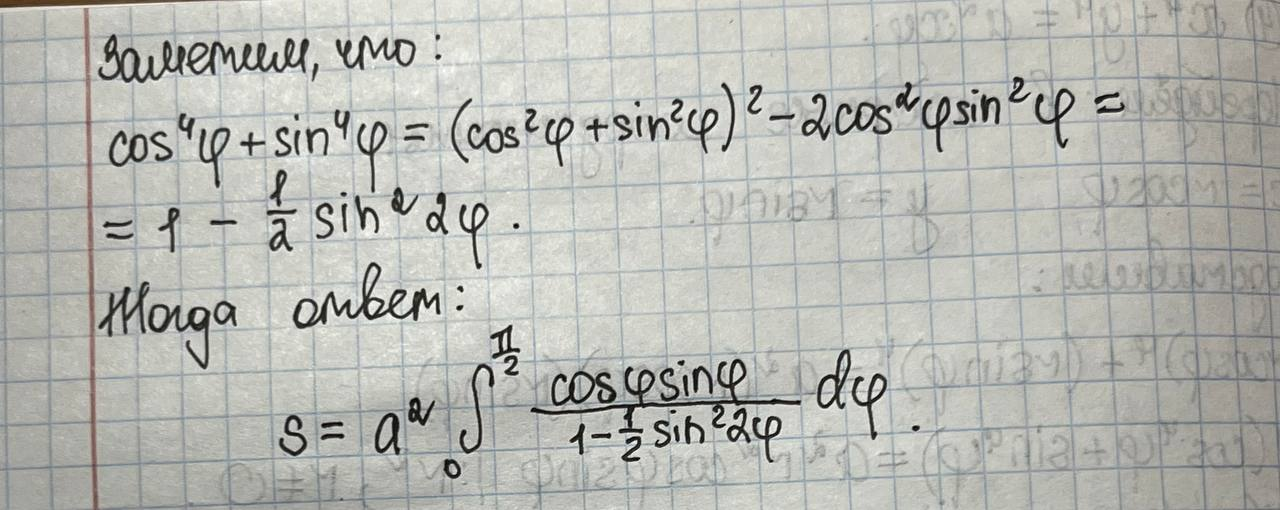 Заметим, что:
cos⁴φ + sin⁴φ = (cos²φ + sin²φ)² − 2cos²φsin²φ =
= 1 − 1/2 sin² 2φ.
Тогда ответ:
S = a² ∫₀^{π/2} cosφsinφ / (1 − 1/2 sin²2φ) dφ.